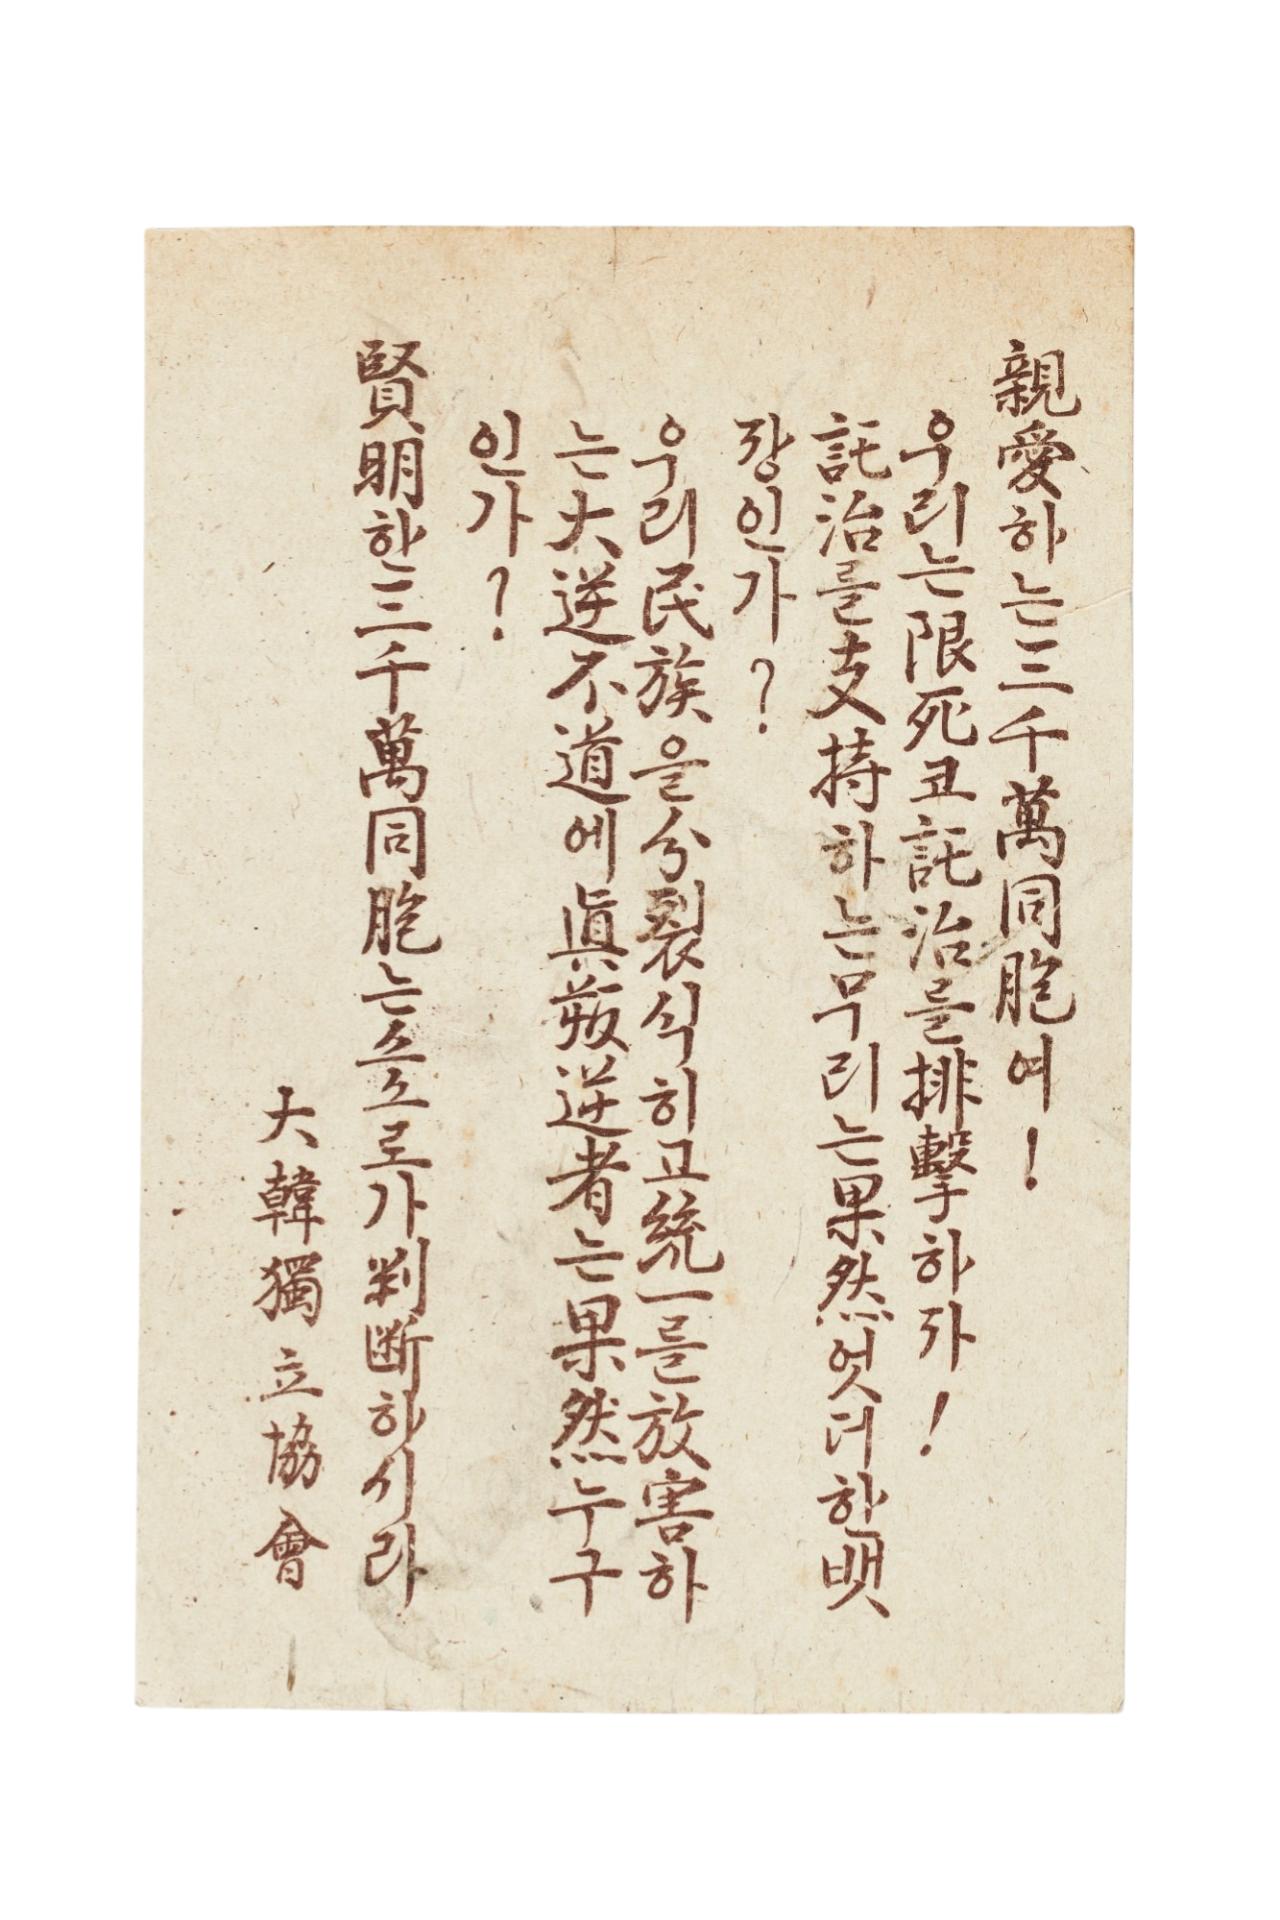 親愛하는三千萬同胞여!
우리는限死코託治를排擊하자!
託治를支持하는무리는果然엇더한뱃
장인가?
우리民族을分裂식히고統一를放害하
는大逆不道에眞叛逆者는果然누구
인가?
賢明한三千萬同胞는스스로가判斷하시라
大韓獨立協會